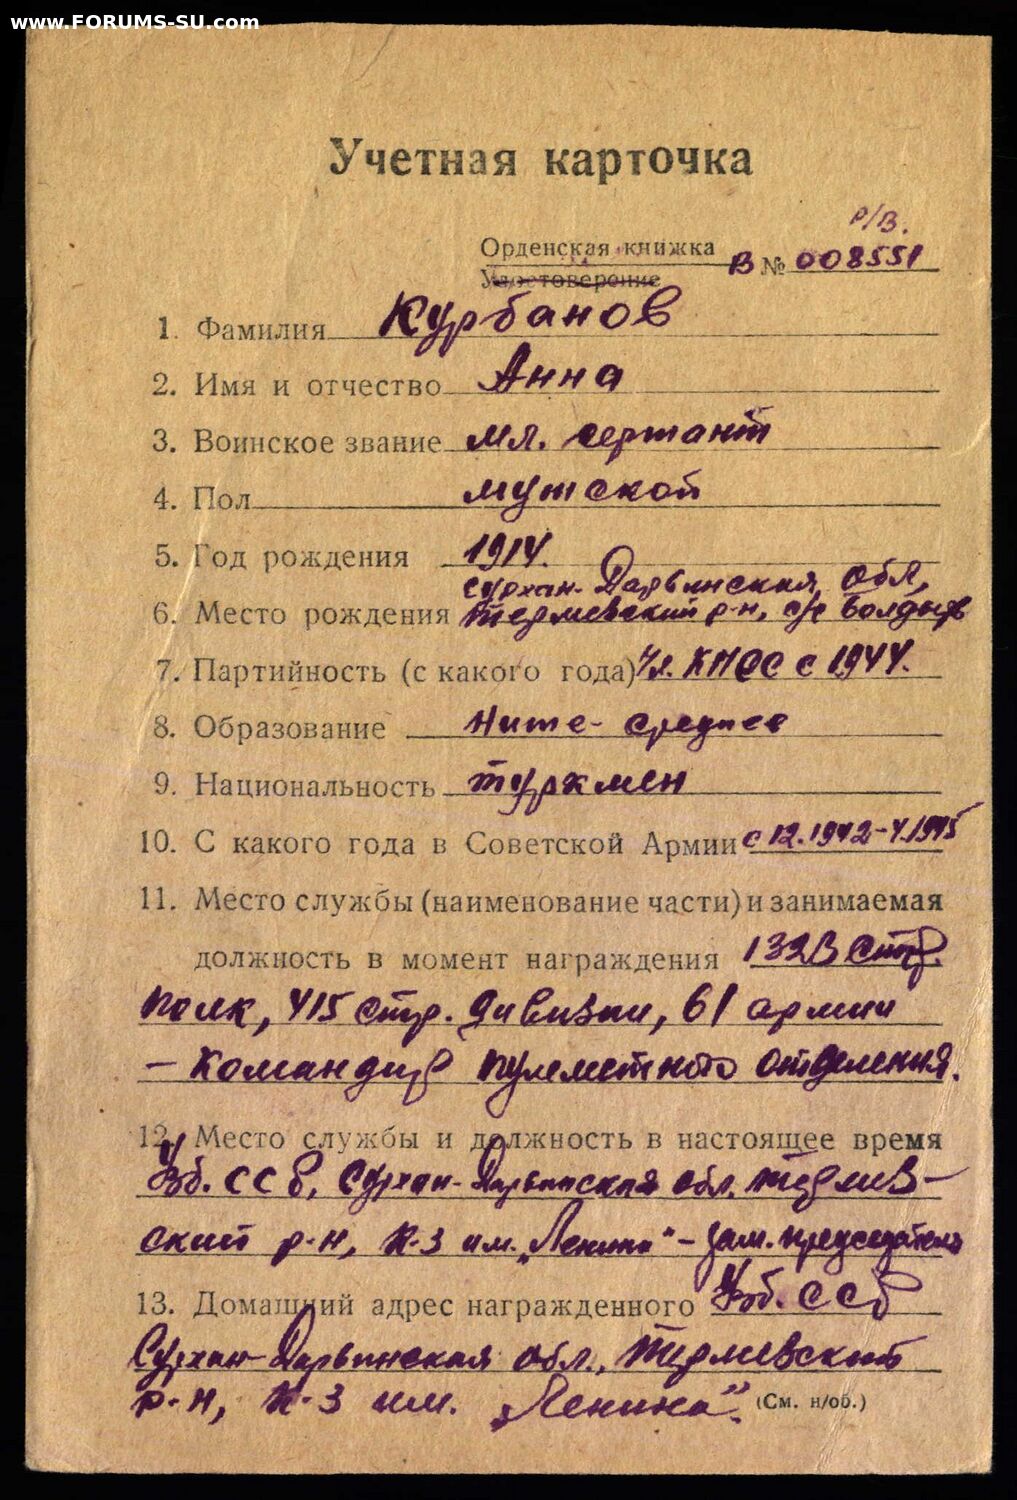 www.FORUMS-SU.com
Учетная карточка
Р/В.
Орденская книжка В № 008551
Удостоверение
1. Фамилия Курбанов
2. Имя и отчество Анна
3. Воинское звание мл. сержант
4. Пол мужской
5. Год рождения 1914.
Сурхан-Дарьинская обл,
6. Место рождения Термезский р-н, с/с
7. Партийность (с какого года) Чл. КПСС с 1944.
8. Образование Ниже-среднее
9. Национальность туркмен
10. С какого года в Советской Армии с 12.1942-4.1945
11. Место службы (наименование части) и занимаемая
должность в момент награждения 1323 стр.
полк, 415 стр. дивизии, 61 армии
– командир пулеметного отделения.
12. Место службы и должность в настоящее время
Узб. ССР, Сурхан-Дарьинская обл. Термез-
ский р-н, к-з им. „Ленина" – зам. председателя
13. Домашний адрес награжденного Узб. ССР
Сурхан-Дарьинская обл., Термезский
р-н, к-з им. „Ленина". (См. н/об.)